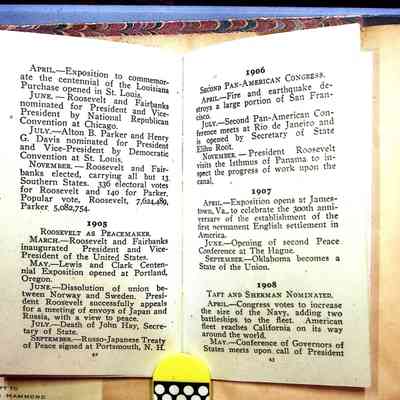 APRIL.—Exposition to commemor-
ate the centennial of the Louisiana
Purchase opened in St. Louis.
JUNE.—Roosevelt and Fairbanks
nominated for President and Vice-
President by National Republican
Convention at Chicago.
JULY.—Alton B. Parker and Henry
G. Davis nominated for President
and Vice-President by Democratic
Convention at St. Louis.
NOVEMBER.—Roosevelt and Fair-
banks elected, carrying all but 13
Southern States. 336 electoral votes
for Roosevelt and 140 for Parker.
Popular vote, Roosevelt, 7,624,489,
Parker 5,082,754.
1905
ROOSEVELT AS PEACEMAKER.
MARCH.—Roosevelt and Fairbanks
inaugurated President and Vice-
President of the United States.
MAY.—Lewis and Clark Centen-
nial Exposition opened at Portland,
Oregon.
JUNE.—Dissolution of union be-
tween Norway and Sweden. Presi-
dent Roosevelt successfully appeals
for a meeting of envoys of Japan and
Russia, with a view to peace.
JULY.—Death of John Hay, Secre-
tary of State.
SEPTEMBER.—Russo-Japanese Treaty
of Peace signed at Portsmouth, N. H.
1906
SECOND PAN-AMERICAN CONGRESS.
APRIL.—Fire and earthquake de-
stroys a large portion of San Fran-
cisco.
JULY.—Second Pan-American Con-
ference meets at Rio de Janeiro and
is opened by Secretary of State
Elihu Root.
NOVEMBER.—President Roosevelt
visits the Isthmus of Panama to in-
spect the progress of work upon the
canal.
1907
APRIL.—Exposition opens at James-
town, Va., to celebrate the 300th anni-
versary of the establishment of the
first permanent English settlement in
America.
JUNE.—Opening of second Peace
Conference at The Hague.
SEPTEMBER.—Oklahoma becomes a
State of the Union.
1908
TAFT AND SHERMAN NOMINATED.
APRIL.—Congress votes to increase
the size of the Navy, adding two
battleships to the fleet. American
fleet reaches California on its way
around the world.
MAY.—Conference of Governors of
States meets upon call of President
HAMMOND